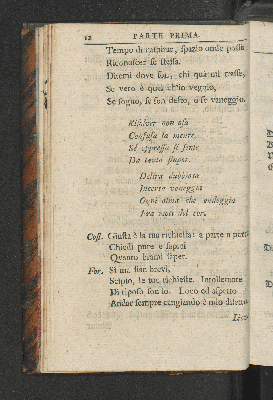 12 PARTE PRIMA.
Tempo di respirar, spazio onde possa
Riconoscer se stessa.
Ditemi dove son, chi quà mi trasse,
Se vero è quel ch'io veggio,
Se sogno, se son desto, o se vaneggio.
Risolver non osa
Confusa la mente,
Che oppressa si sente
Da tanto stupor.
Delira dubbiosa
Incerta vaneggia
Ogni alma che ondeggia
Fra moti del cor.
Cost. Giusta è la tua richiesta: a parte a parte
Chiedi pure e saprai
Quanto brami saper.
For. Sì ma sian brevi,
Scipio, le tue richieste. Intollerante
Di riposo son io. Loco ed aspetto
Andar sempre cangiando è mio diletto